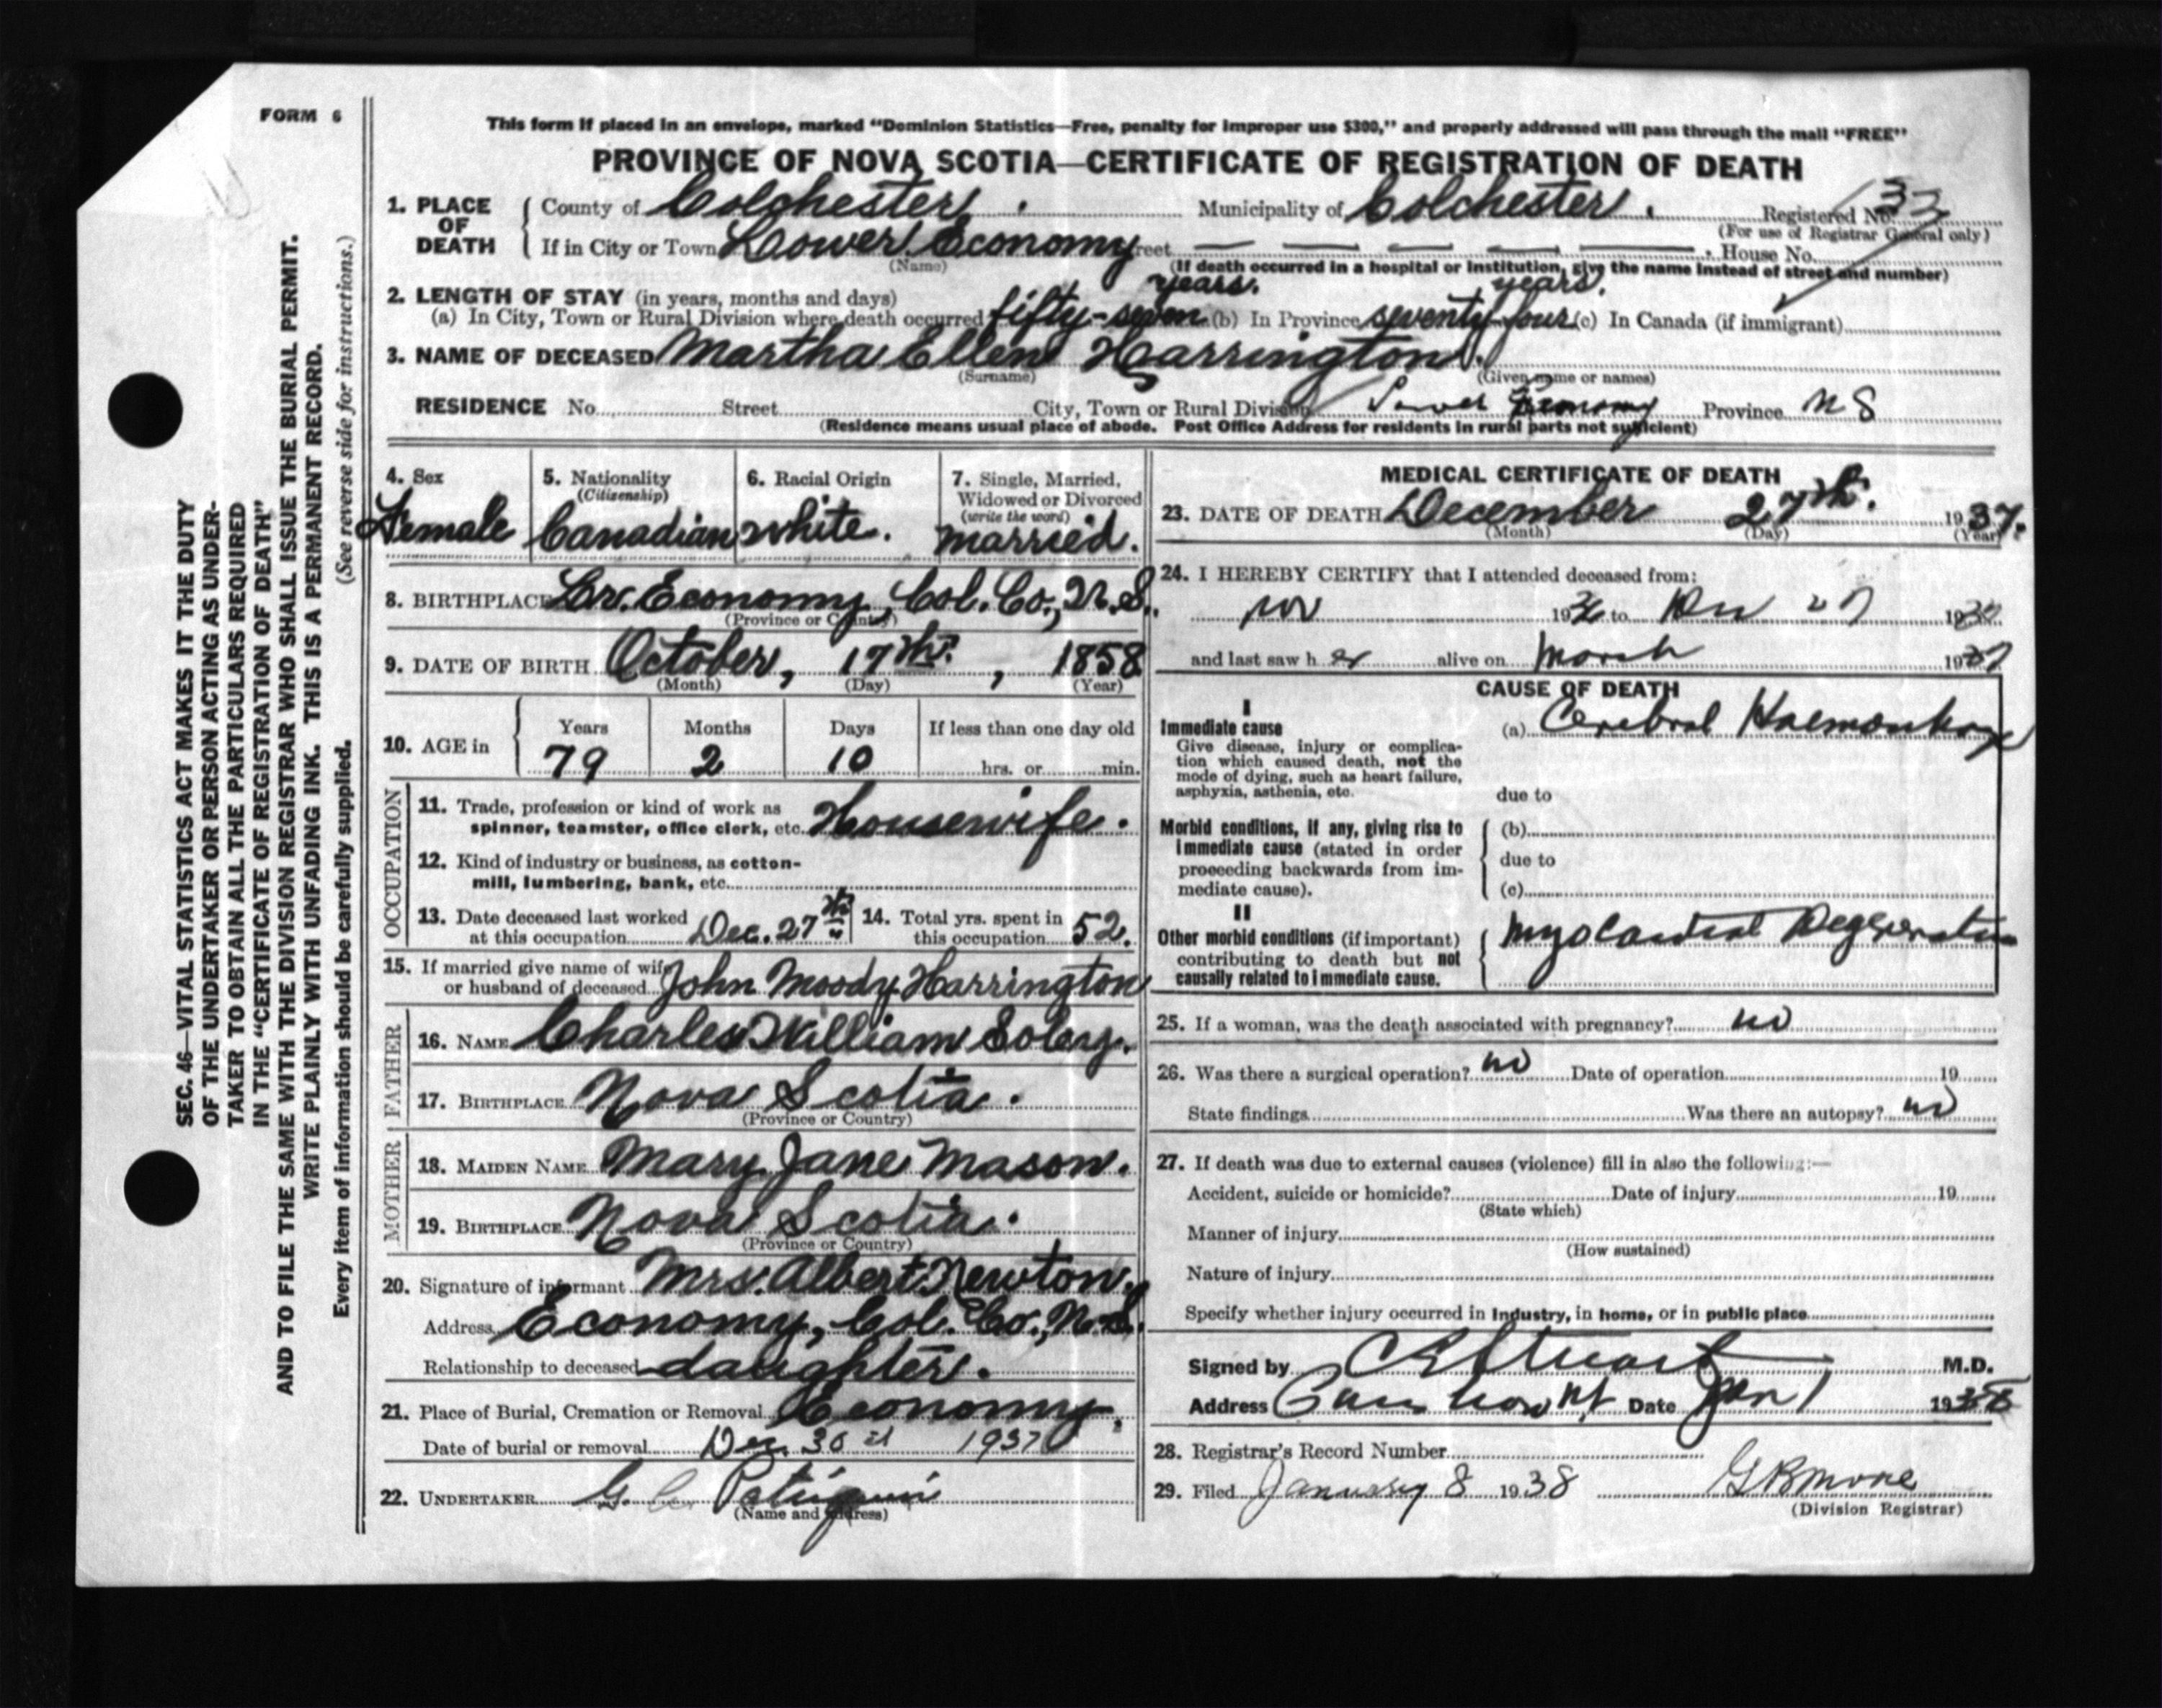 FORM 6
This form if placed in an envelope, marked "Dominion Statistics—Free, penalty for improper use $300," and properly addressed will pass through the mail "FREE"
PROVINCE OF NOVA SCOTIA—CERTIFICATE OF REGISTRATION OF DEATH
1. PLACE OF DEATH County of Colchester. Municipality of Colchester. Registered No. 33
(For use of Registrar General only)
If in City or Town Lower Economy Street — — — — — House No.
(Name) (If death occurred in a hospital or institution, give the name instead of street and number)
2. LENGTH OF STAY (in years, months and days) years. years.
(a) In City, Town or Rural Division where death occurred fifty-seven (b) In Province seventy-four (c) In Canada (if immigrant)
3. NAME OF DECEASED Martha Ellen Harrington.
(Surname) (Given name or names)
RESIDENCE No. Street City, Town or Rural Division Lower Economy Province N S
(Residence means usual place of abode. Post Office Address for residents in rural parts not sufficient)
4. Sex 5. Nationality (Citizenship) 6. Racial Origin 7. Single, Married, Widowed or Divorced (write the word)
Female Canadian White. Married.
8. BIRTHPLACE Lr. Economy, Col. Co., N.S.
(Province or Country)
9. DATE OF BIRTH October, 17th., 1858
(Month) (Day) (Year)
10. AGE in Years Months Days If less than one day old
79 2 10 hrs. or min.
OCCUPATION
11. Trade, profession or kind of work as
spinner, teamster, office clerk, etc. Housewife.
12. Kind of industry or business, as cotton-
mill, lumbering, bank, etc.
13. Date deceased last worked at this occupation Dec. 27th 14. Total yrs. spent in this occupation 52.
15. If married give name of wife
or husband of deceased John Moody Harrington
FATHER
16. NAME Charles William Soley.
17. BIRTHPLACE Nova Scotia.
(Province or Country)
MOTHER
18. MAIDEN NAME Mary Jane Mason.
19. BIRTHPLACE Nova Scotia.
(Province or Country)
20. Signature of informant Mrs. Albert Newton.
Address Economy, Col. Co., N.S.
Relationship to deceased daughter.
21. Place of Burial, Cremation or Removal Economy.
Date of burial or removal Dec. 30 1937
22. UNDERTAKER G.
(Name and address)
MEDICAL CERTIFICATE OF DEATH
23. DATE OF DEATH December 27th. 1937.
(Month) (Day) (Year)
24. I HEREBY CERTIFY that I attended deceased from:
19 to 27 19
and last saw her alive on March 1937
CAUSE OF DEATH
I
Immediate cause (a) Cerebral Haemorrhage
Give disease, injury or complica-
tion which caused death, not the
mode of dying, such as heart failure,
asphyxia, asthenia, etc. due to
Morbid conditions, if any, giving rise to (b)
immediate cause (stated in order due to
proceeding backwards from im-
mediate cause). (c)
II
Other morbid conditions (if important) Myocardial Degeneration
contributing to death but not
causally related to immediate cause.
25. If a woman, was the death associated with pregnancy? no
26. Was there a surgical operation? no Date of operation 19
State findings Was there an autopsy? no
27. If death was due to external causes (violence) fill in also the following:—
Accident, suicide or homicide? Date of injury 19
(State which)
Manner of injury
(How sustained)
Nature of injury
Specify whether injury occurred in industry, in home, or in public place
Signed by M.D.
Address Date Jan 1 1938
28. Registrar's Record Number
29. Filed January 8 1938
(Division Registrar)
SEC. 46—VITAL STATISTICS ACT MAKES IT THE DUTY
OF THE UNDERTAKER OR PERSON ACTING AS UNDER-
TAKER TO OBTAIN ALL THE PARTICULARS REQUIRED
IN THE "CERTIFICATE OF REGISTRATION OF DEATH"
AND TO FILE THE SAME WITH THE DIVISION REGISTRAR WHO SHALL ISSUE THE BURIAL PERMIT.
WRITE PLAINLY WITH UNFADING INK. THIS IS A PERMANENT RECORD.
Every item of information should be carefully supplied. (See reverse side for instructions.)